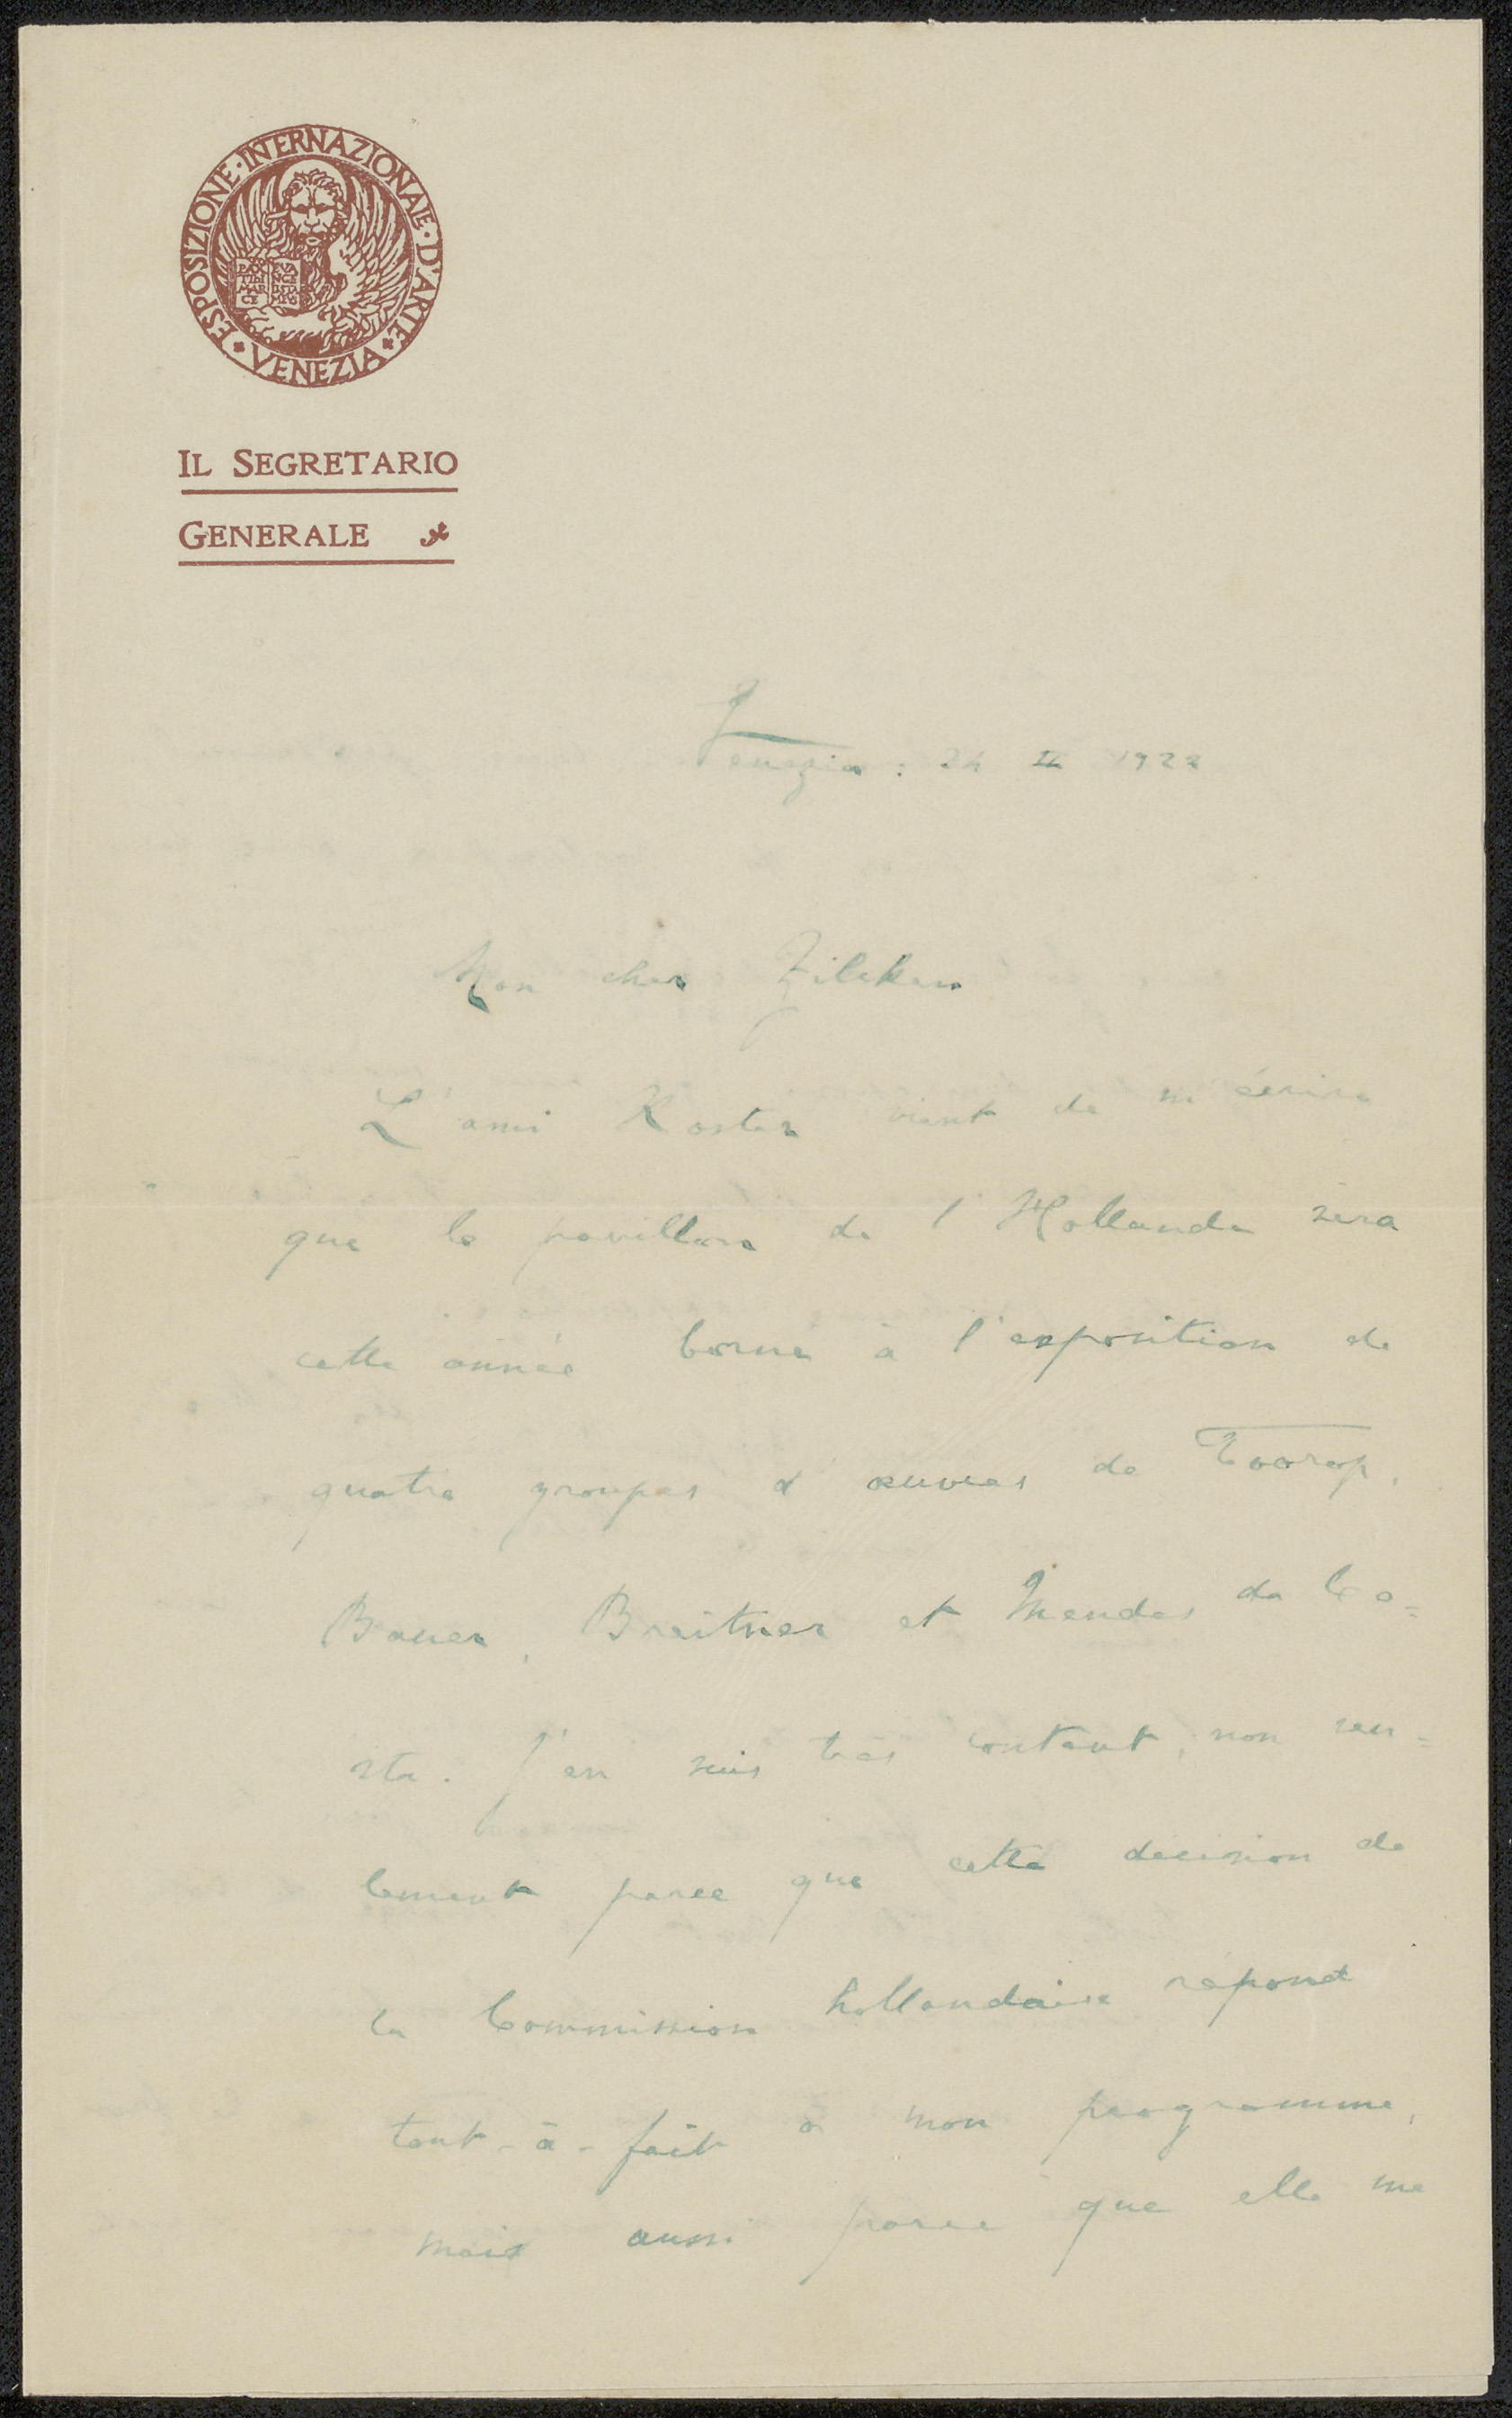 ESPOSIZIONE · INTERNAZIONALE · D'ARTE · VENEZIA
PAX TIBI MARCE EVANGELISTA MEUS
IL SEGRETARIO
GENERALE
Venezia : 24 II 1922
Mon cher Zilcken
L'ami Koster vient de m'écrire
que le pavillon de l'Hollande sera
cette année borné à l'exposition de
quatre groupes d'œuvres de Toorop,
Bauer, Breitner et Mendes da Co=
sta. J'en suis très content, non seu=
lement parce que cette décision de
la Commission hollandaise répond
tout-à-fait à mon programme,
mais aussi parce que elle me